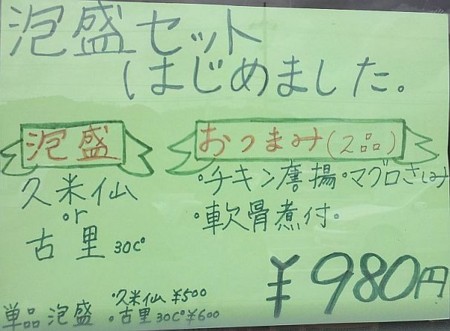 泡盛セット
はじめました。
泡盛
久米仙
or
古里 30C°
おつまみ(2品)
・チキン唐揚・マグロさしみ
・軟骨煮付・
¥980円
単品 泡盛
・久米仙 ¥500
・古里 30C° ¥600